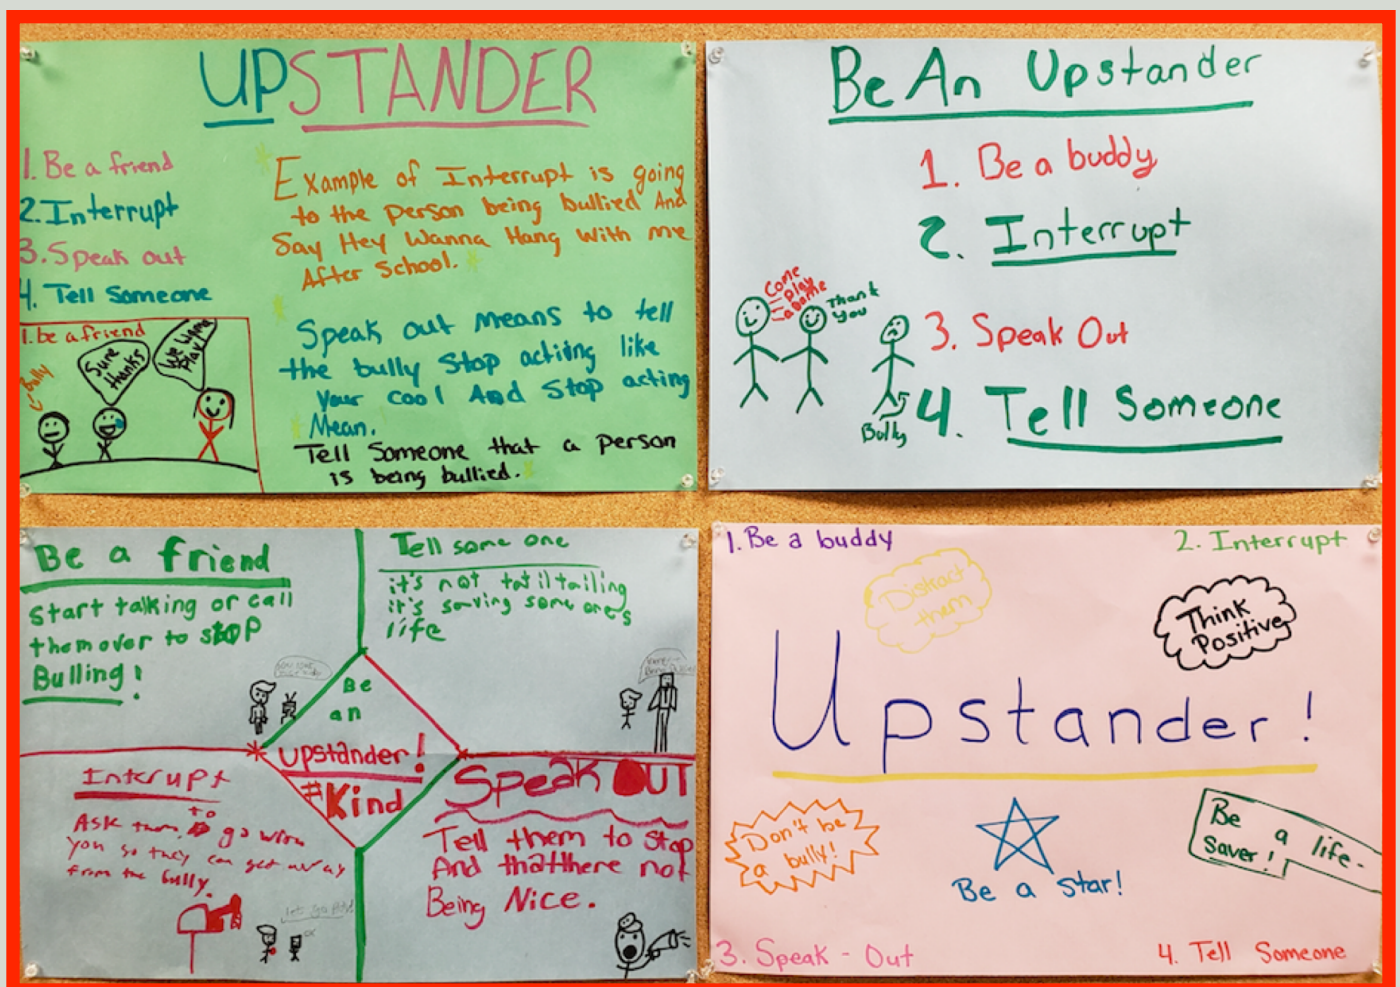 UPSTANDER
1. Be a friend
2. Interrupt
3. Speak out
4. Tell Someone
Example of Interrupt is going
to the person being bullied And
Say Hey Wanna Hang With me
After School.
Speak out means to tell
the bully Stop actiing like
your cool And Stop acting
Mean.
Tell Someone that a person
is being bullied.
1. be a friend
Bully
Sure
thanks
We Wanna
Play
Be An Upstander
1. Be a buddy
2. Interrupt
3. Speak Out
4. Tell Someone
Come
play
a Game
Thank
you
Bully
Be a friend
Start talking or call
them over to stop
Bulling!
Tell some one
it's not tatiltailing
it's saving some ones
life
Be
an
upstander!
#Kind
Interupt
Ask them to go with
you so they can get away
from the bully.
Speak OUT
Tell them to stop
And that there not
Being Nice.
1. Be a buddy
2. Interrupt
Distract
them
Think
Positive
Upstander!
Don't be
a bully!
Be a Star!
Be a life-
saver!
3. Speak - Out
4. Tell Someone